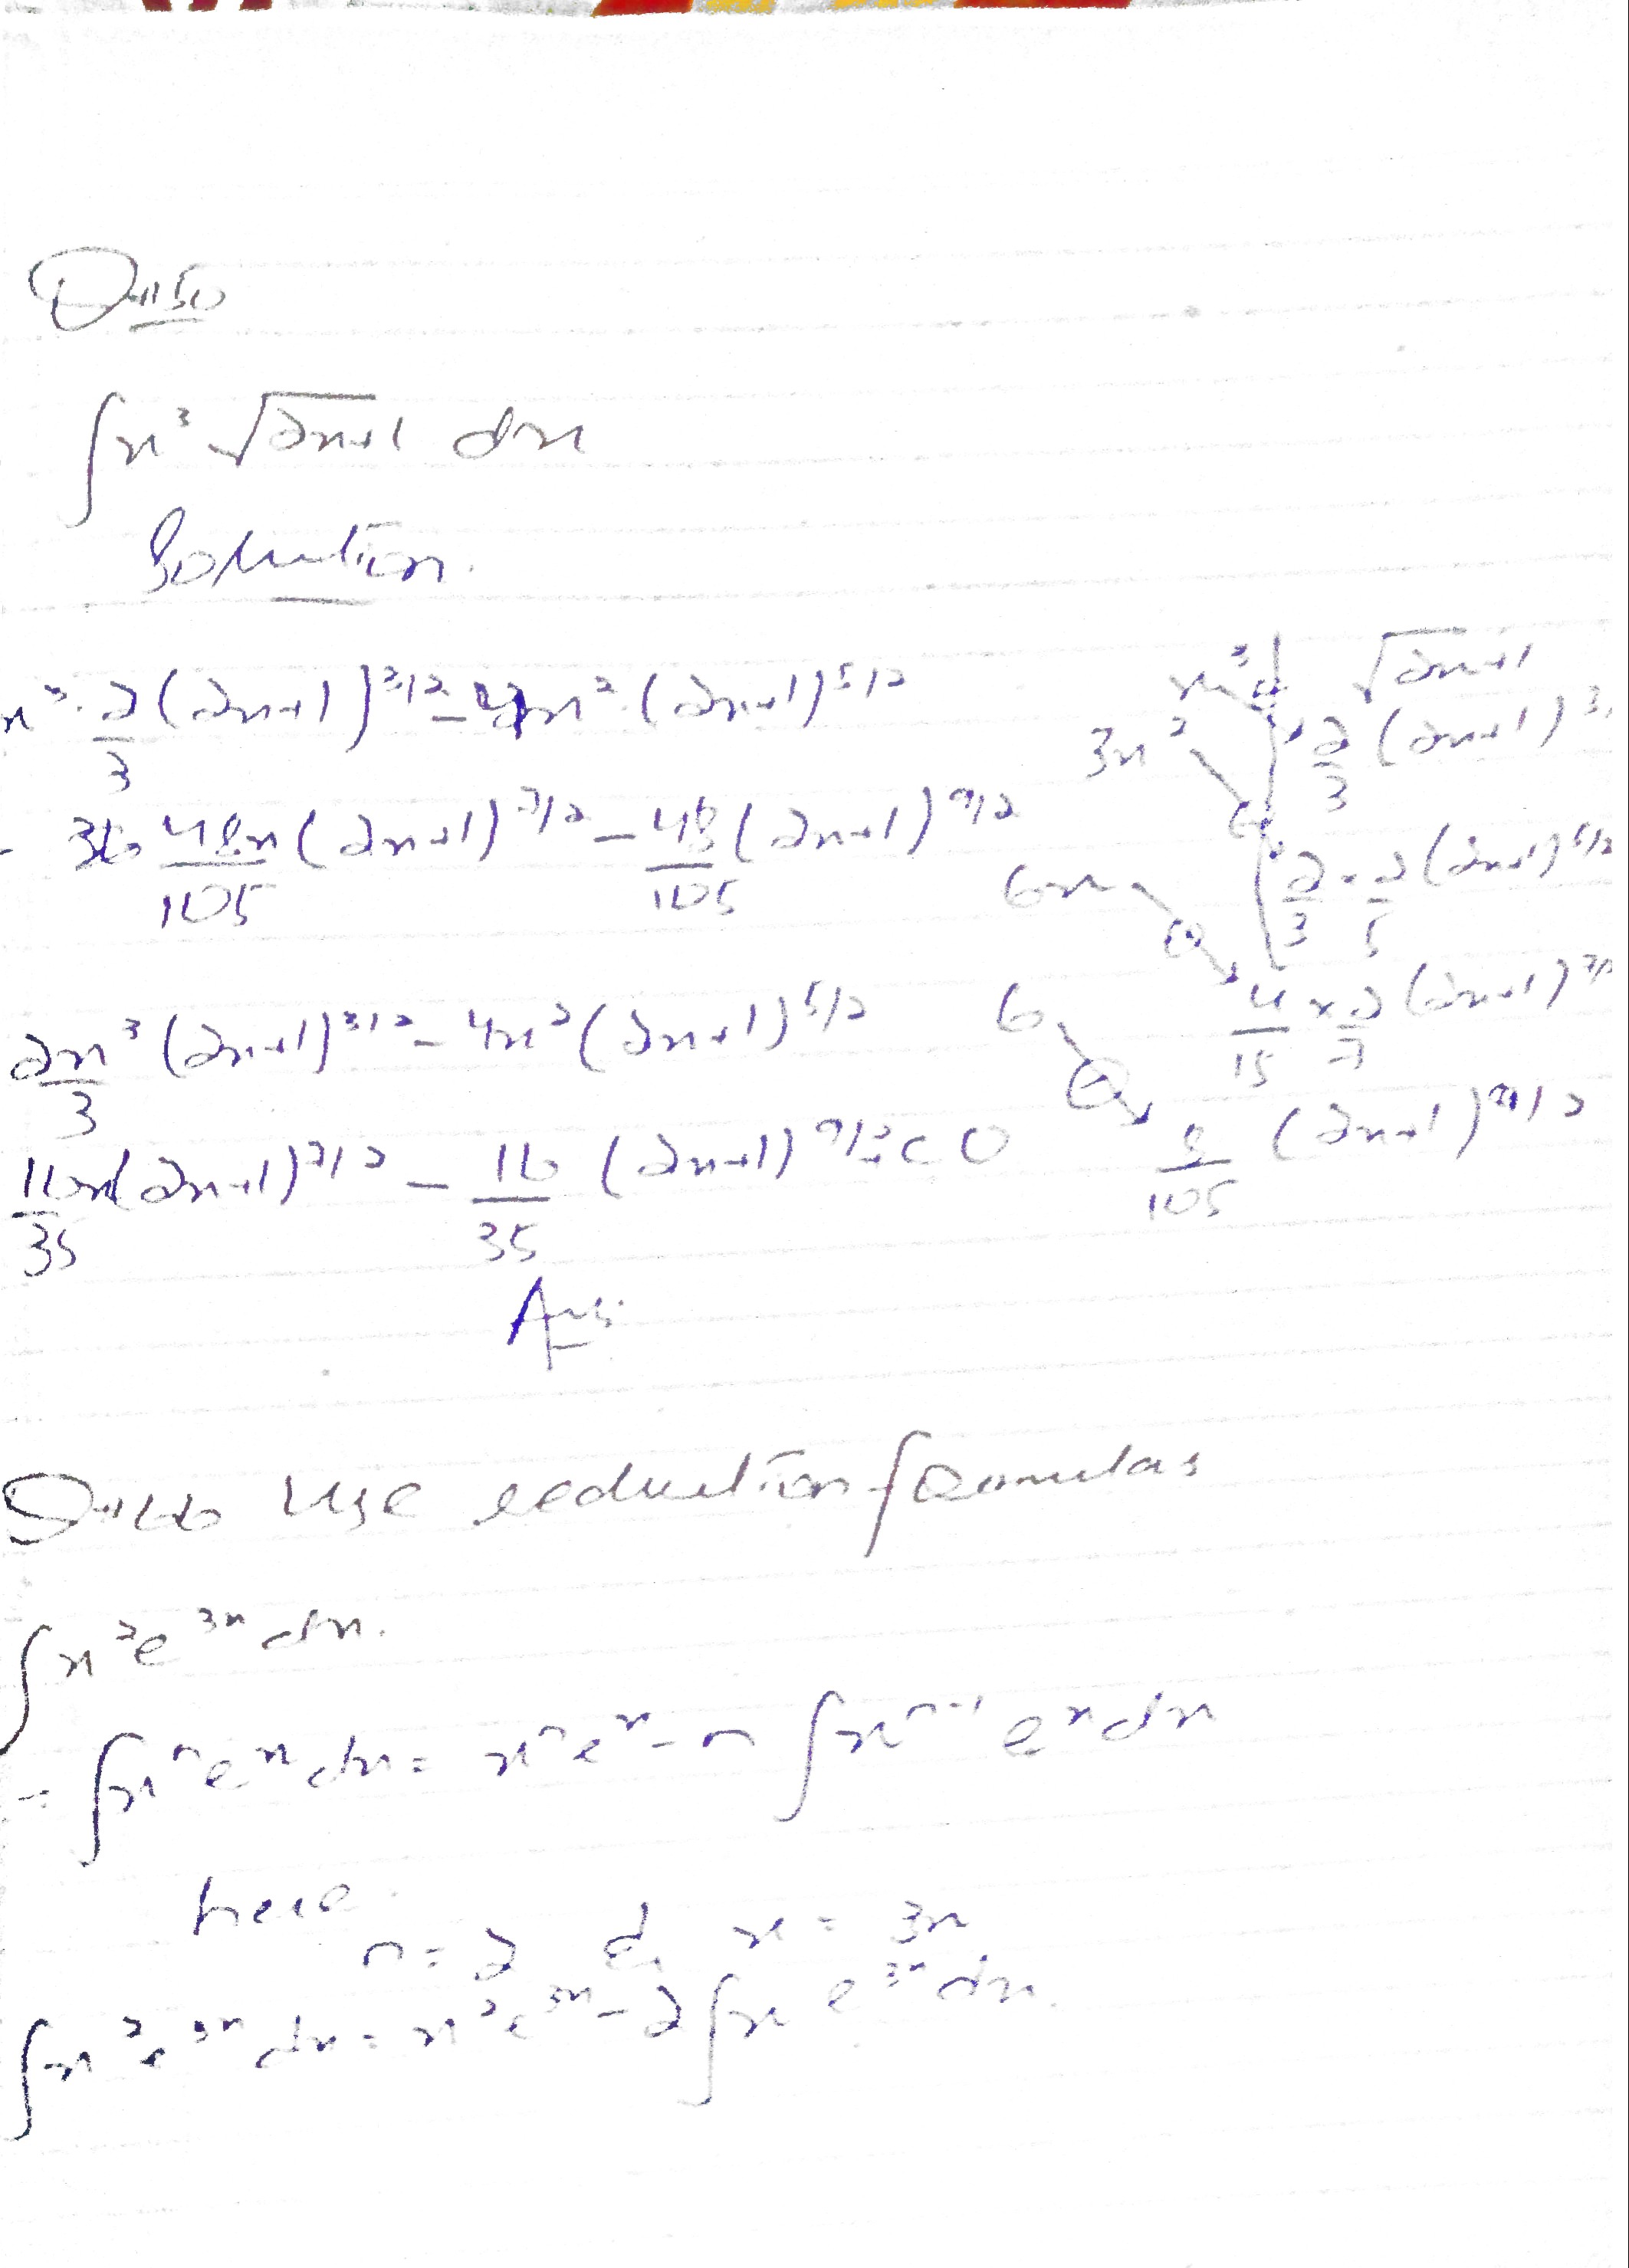 ∫x³ √2x+1 dx
Solution.
x³ · 2/3 (2x+1)^3/2 - 4x² · (2x+1)^5/2
48x/105 (2x+1)^7/2 - 48/105 (2x+1)^9/2
2x³/3 (2x+1)^3/2 - 4x² (2x+1)^5/2
16x/35 (2x+1)^7/2 - 16/35 (2x+1)^9/2 + C
Ans.
x³ √2x+1
3x² 2/3 (2x+1)^3/
2/3 × 2/5 (2x+1)^5/2
6x
6 4/15 × 2/7 (2x+1)^7/2
8/105 (2x+1)^9/2
Use reduction formulas
∫x²e^3x dx.
= ∫x^n e^x dx = x^n e^x - n ∫x^n-1 e^x dx
here
n = 2 & x = 3x
∫x²e^3x dx = x²e^3x - 2∫x e^3x dx.